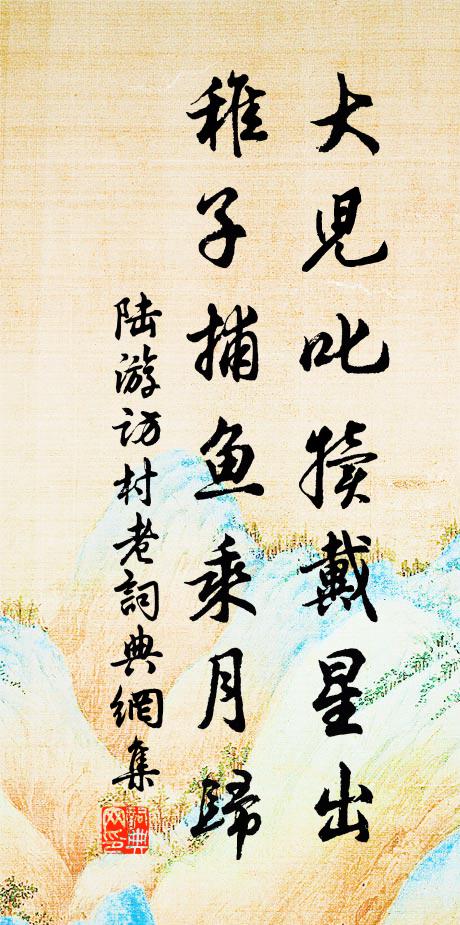 大児叱犢戴星出
稚子捕鱼乘月歸
陆游访村老詞典網集
詞典网印